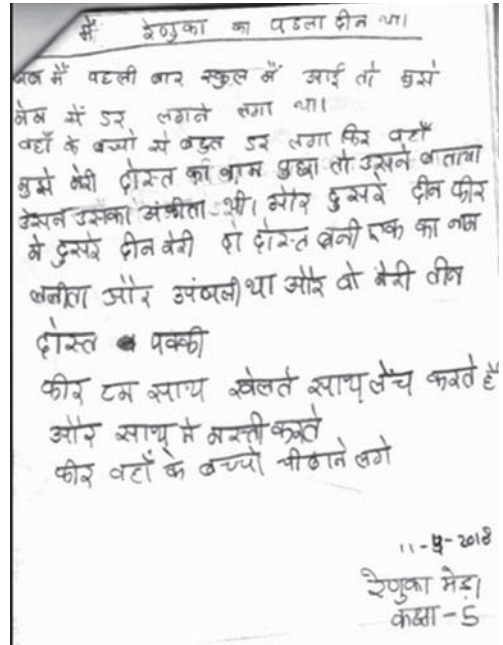 में रेणुका का पहला दीन था।
जब मैं पहली बार स्कुल में आई तो मुझे
मेम से डर लगने लगा था।
वहाँ के बच्चो से बहुत डर लगा फिर वहाँ
मुझे मेरी दोस्त का नाम पुछा तो उसने बाताया
उसने उसका अंकीता थी। और दुसरे दीन फीर
मे दुसरे दीन मेरी दो दोस्त बनी एक का नाम
बनीता और उंषली था और वो मेरी तीन
दोस्त पक्की
फीर हम साथ खेलते साथ लेंच करते हैं
और साथ मे मस्ती करते
फीर वहाँ के बच्चो चीढाने लगे
11-5-2018
रेणुका मेड़ा
कक्षा - 5